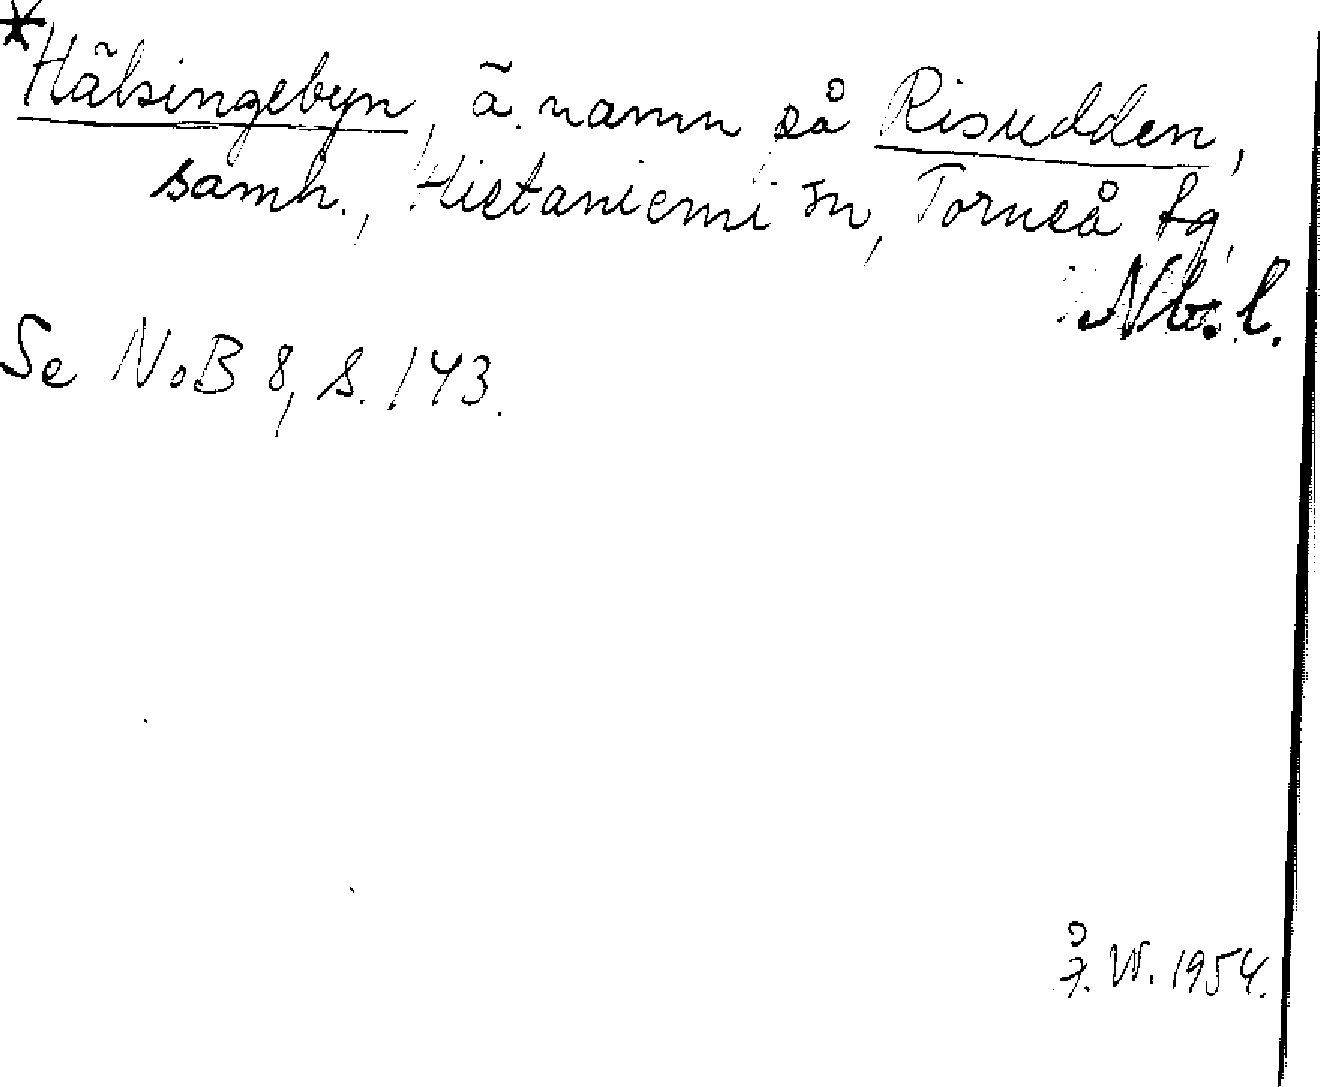 *Hälsingebyn, ä. namn på Risudden,
samh., Hietaniemi sn, Torneå tg,
Nb. l.
Se NoB 8, s. 143.
1954.